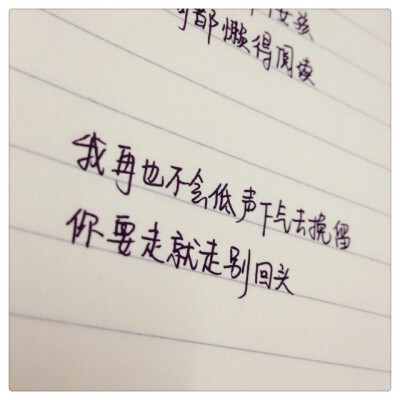 都懒得阅读
我再也不会低声下气去挽留
你要走就走别回头